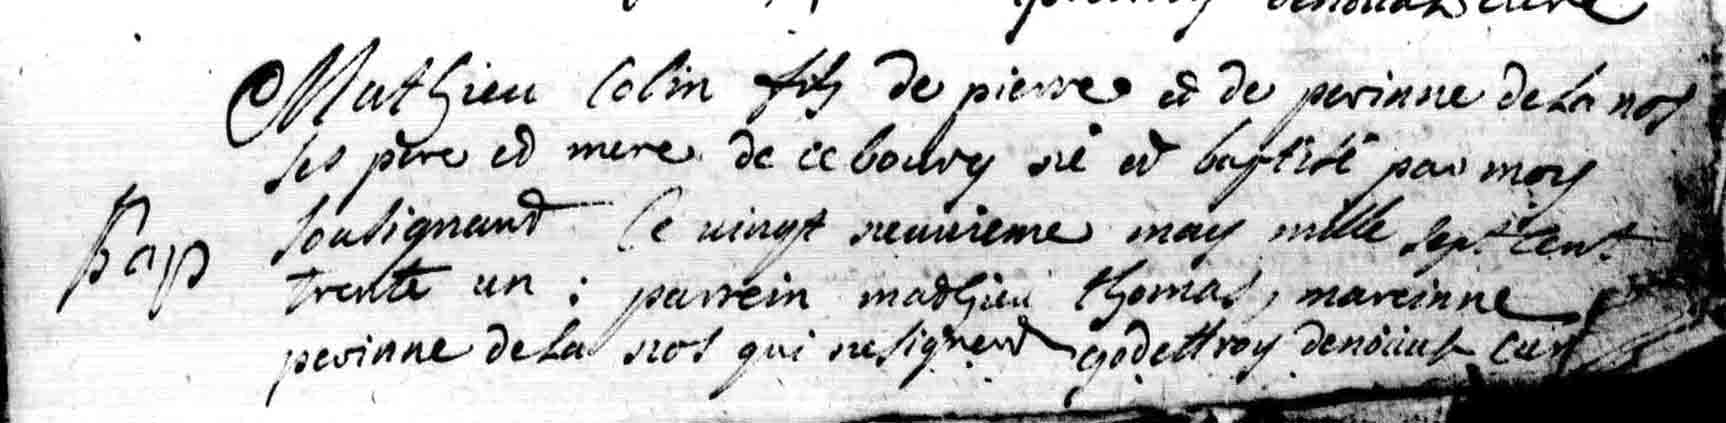 Mathieu Colin fils de pierre et de perinne de La nos
ses père et mere de ce bourg né et baptisé par moy
Bap
sousignant Ce vingt neuvieme may mille sept cent
trente un : parrein mathieu thomas, mareinne
perinne de La nos qui ne signent godeffroy